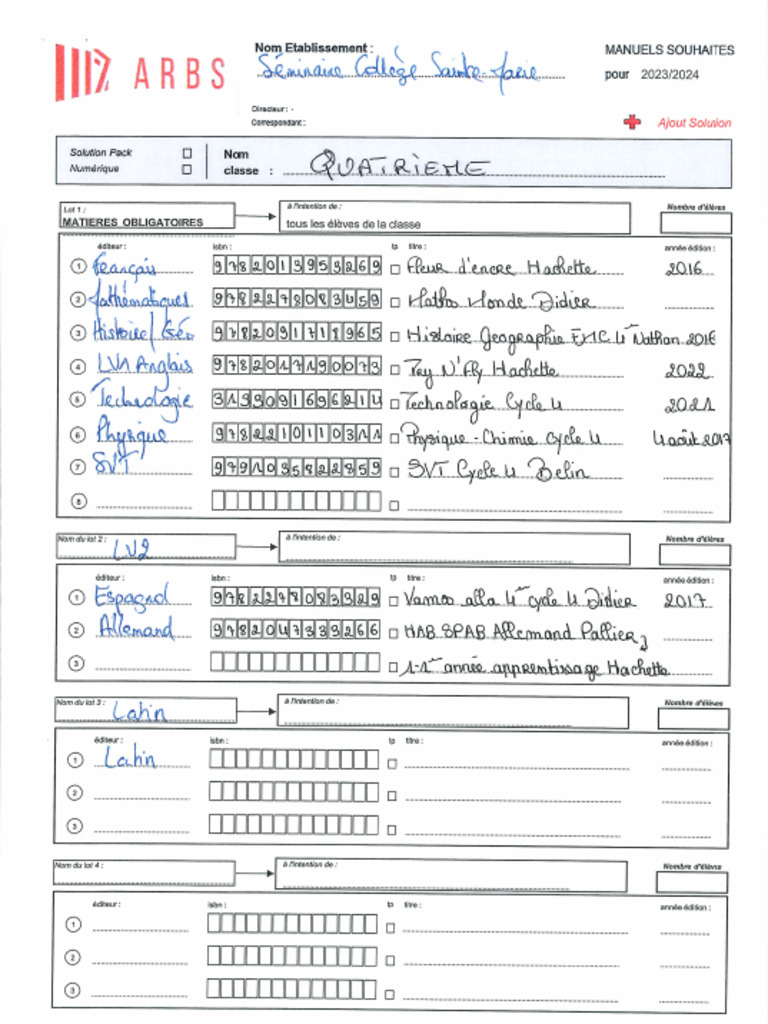 ARBS
Nom Etablissement : Séminaire Collège Sainte-Marie
MANUELS SOUHAITES
pour 2023/2024
Directeur : -
Correspondant :
Ajout Solution
Solution Pack
Numérique
Nom
classe : QUATRIEME
Lot 1 :
MATIERES OBLIGATOIRES
à l'intention de :
tous les élèves de la classe
Nombre d'élèves
éditeur : isbn : tp titre : année édition :
1 Français 9782013953269 Fleur d'encre Hachette 2016
2 Mathématiques 9782278083459 Maths Monde Didier
3 Histoire/Géo 9782091718965 Histoire Geographie EMC 4e Nathan 2016
4 LV1 Anglais 9782017190073 Tey N'Fly Hachette 2022
5 Technologie 3199091696214 Technologie Cycle 4 2021
6 Physique 9782210110311 Physique-Chimie Cycle 4 4 août 2017
7 SVT 9791035822859 SVT Cycle 4 Belin
8
Nom du lot 2 : LV2
à l'intention de :
Nombre d'élèves
éditeur : isbn : tp titre : année édition :
1 Espagnol 9782278083329 Vamos alla 4e cycle 4 Didier 2017
2 Allemand 9782047339266 HAB.SPAB Allemand Pallier
3 1-1ere année apprentissage Hachette
Nom du lot 3 : Latin
à l'intention de :
Nombre d'élèves
éditeur : isbn : tp titre : année édition :
1 Latin
2
3
Nom du lot 4 :
à l'intention de :
Nombre d'élèves
éditeur : isbn : tp titre : année édition :
1
2
3